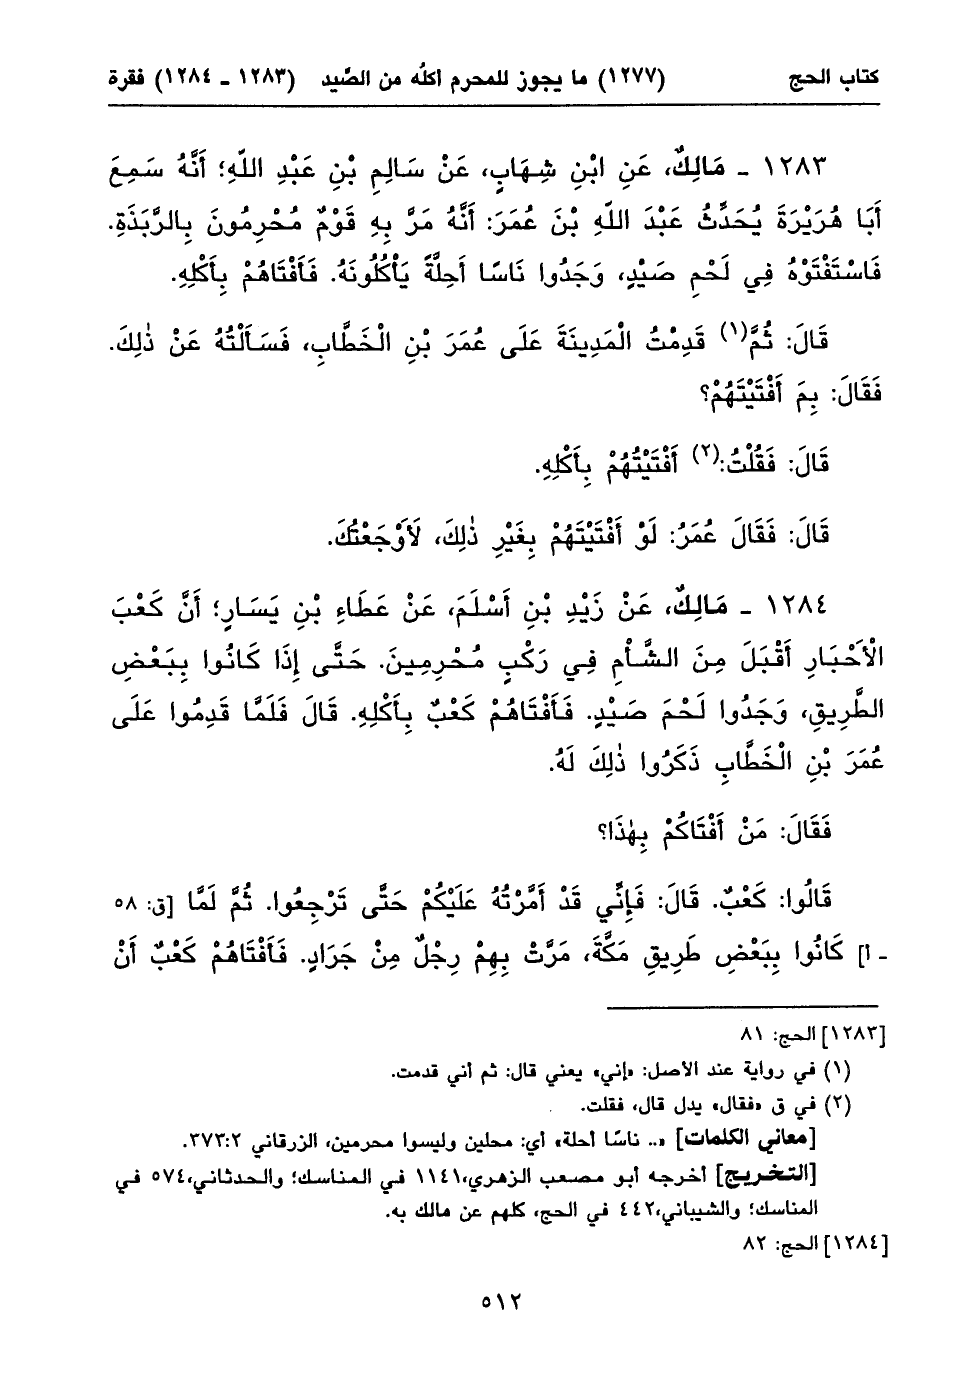 كتاب الحج (١٢٧٧) ما يجوز للمحرم أكلُه من الصَّيد (١٢٨٣ ـ ١٢٨٤) فقرة
١٢٨٣ ـ مَالِكٌ، عَنِ ابْنِ شِهَابٍ، عَنْ سَالِمِ بْنِ عَبْدِ اللّهِ؛ أَنَّهُ سَمِعَ
أَبَا هُرَيْرَةَ يُحَدِّثُ عَبْدَ اللّهِ بْنَ عُمَرَ: أَنَّهُ مَرَّ بِهِ قَوْمٌ مُحْرِمُونَ بِالرَّبَذَةِ.
فَاسْتَفْتَوْهُ فِي لَحْمِ صَيْدٍ، وَجَدُوا نَاسًا أَحِلَّةً يَأْكُلُونَهُ. فَأَفْتَاهُمْ بِأَكْلِهِ.
قَالَ: ثُمَّ(١) قَدِمْتُ الْمَدِينَةَ عَلَى عُمَرَ بْنِ الْخَطَّابِ، فَسَأَلْتُهُ عَنْ ذٰلِكَ.
فَقَالَ: بِمَ أَفْتَيْتَهُمْ؟
قَالَ: فَقُلْتُ:(٢) أَفْتَيْتُهُمْ بِأَكْلِهِ.
قَالَ: فَقَالَ عُمَرُ: لَوْ أَفْتَيْتَهُمْ بِغَيْرِ ذٰلِكَ، لَأَوْجَعْتُكَ.
١٢٨٤ ـ مَالِكٌ، عَنْ زَيْدِ بْنِ أَسْلَمَ، عَنْ عَطَاءِ بْنِ يَسَارٍ؛ أَنَّ كَعْبَ
الْأَحْبَارِ أَقْبَلَ مِنَ الشَّأْمِ فِي رَكْبٍ مُحْرِمِينَ. حَتَّى إِذَا كَانُوا بِبَعْضِ
الطَّرِيقِ، وَجَدُوا لَحْمَ صَيْدٍ. فَأَفْتَاهُمْ كَعْبٌ بِأَكْلِهِ. قَالَ فَلَمَّا قَدِمُوا عَلَى
عُمَرَ بْنِ الْخَطَّابِ ذَكَرُوا ذٰلِكَ لَهُ.
فَقَالَ: مَنْ أَفْتَاكُمْ بِهٰذَا؟
قَالُوا: كَعْبٌ. قَالَ: فَإِنِّي قَدْ أَمَّرْتُهُ عَلَيْكُمْ حَتَّى تَرْجِعُوا. ثُمَّ لَمَّا [ق: ٥٨
ـ أ] كَانُوا بِبَعْضِ طَرِيقِ مَكَّةَ، مَرَّتْ بِهِمْ رِجْلٌ مِنْ جَرَادٍ. فَأَفْتَاهُمْ كَعْبٌ أَنْ
[١٢٨٣] الحج: ٨١
(١) في رواية عند الأصل: «إني» يعني قال: ثم أني قدمت.
(٢) في ق «فقال» يدل قال، فقلت.
[معاني الكلمات] «.. ناسًا أحلة» أي: محلين وليسوا محرمين، الزرقاني ٣٧٣:٢.
[التخريج] أخرجه أبو مصعب الزهري،١١٤١ في المناسك؛ والحدثاني،٥٧٤ في
المناسك؛ والشيباني،٤٤٢ في الحج، كلهم عن مالك به.
[١٢٨٤] الحج: ٨٢
٥١٢